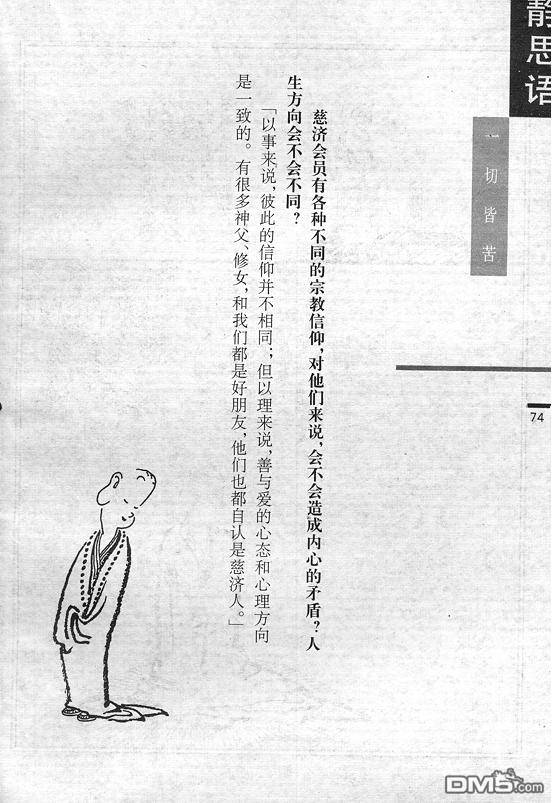 静思语
一切皆苦
慈济会员有各种不同的宗教信仰，对他们来说，会不会造成内心的矛盾？人
生方向会不会不同？
「以事来说，彼此的信仰并不相同；但以理来说，善与爱的心态和心理方向
是一致的。有很多神父、修女，和我们都是好朋友，他们也都自认是慈济人。」
74
DM5.com